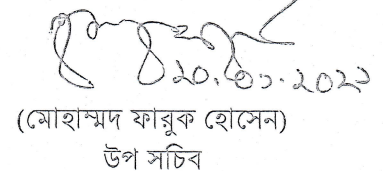 ২০.০১.২০২১
(মোহাম্মদ ফারুক হোসেন)
উপ সচিব